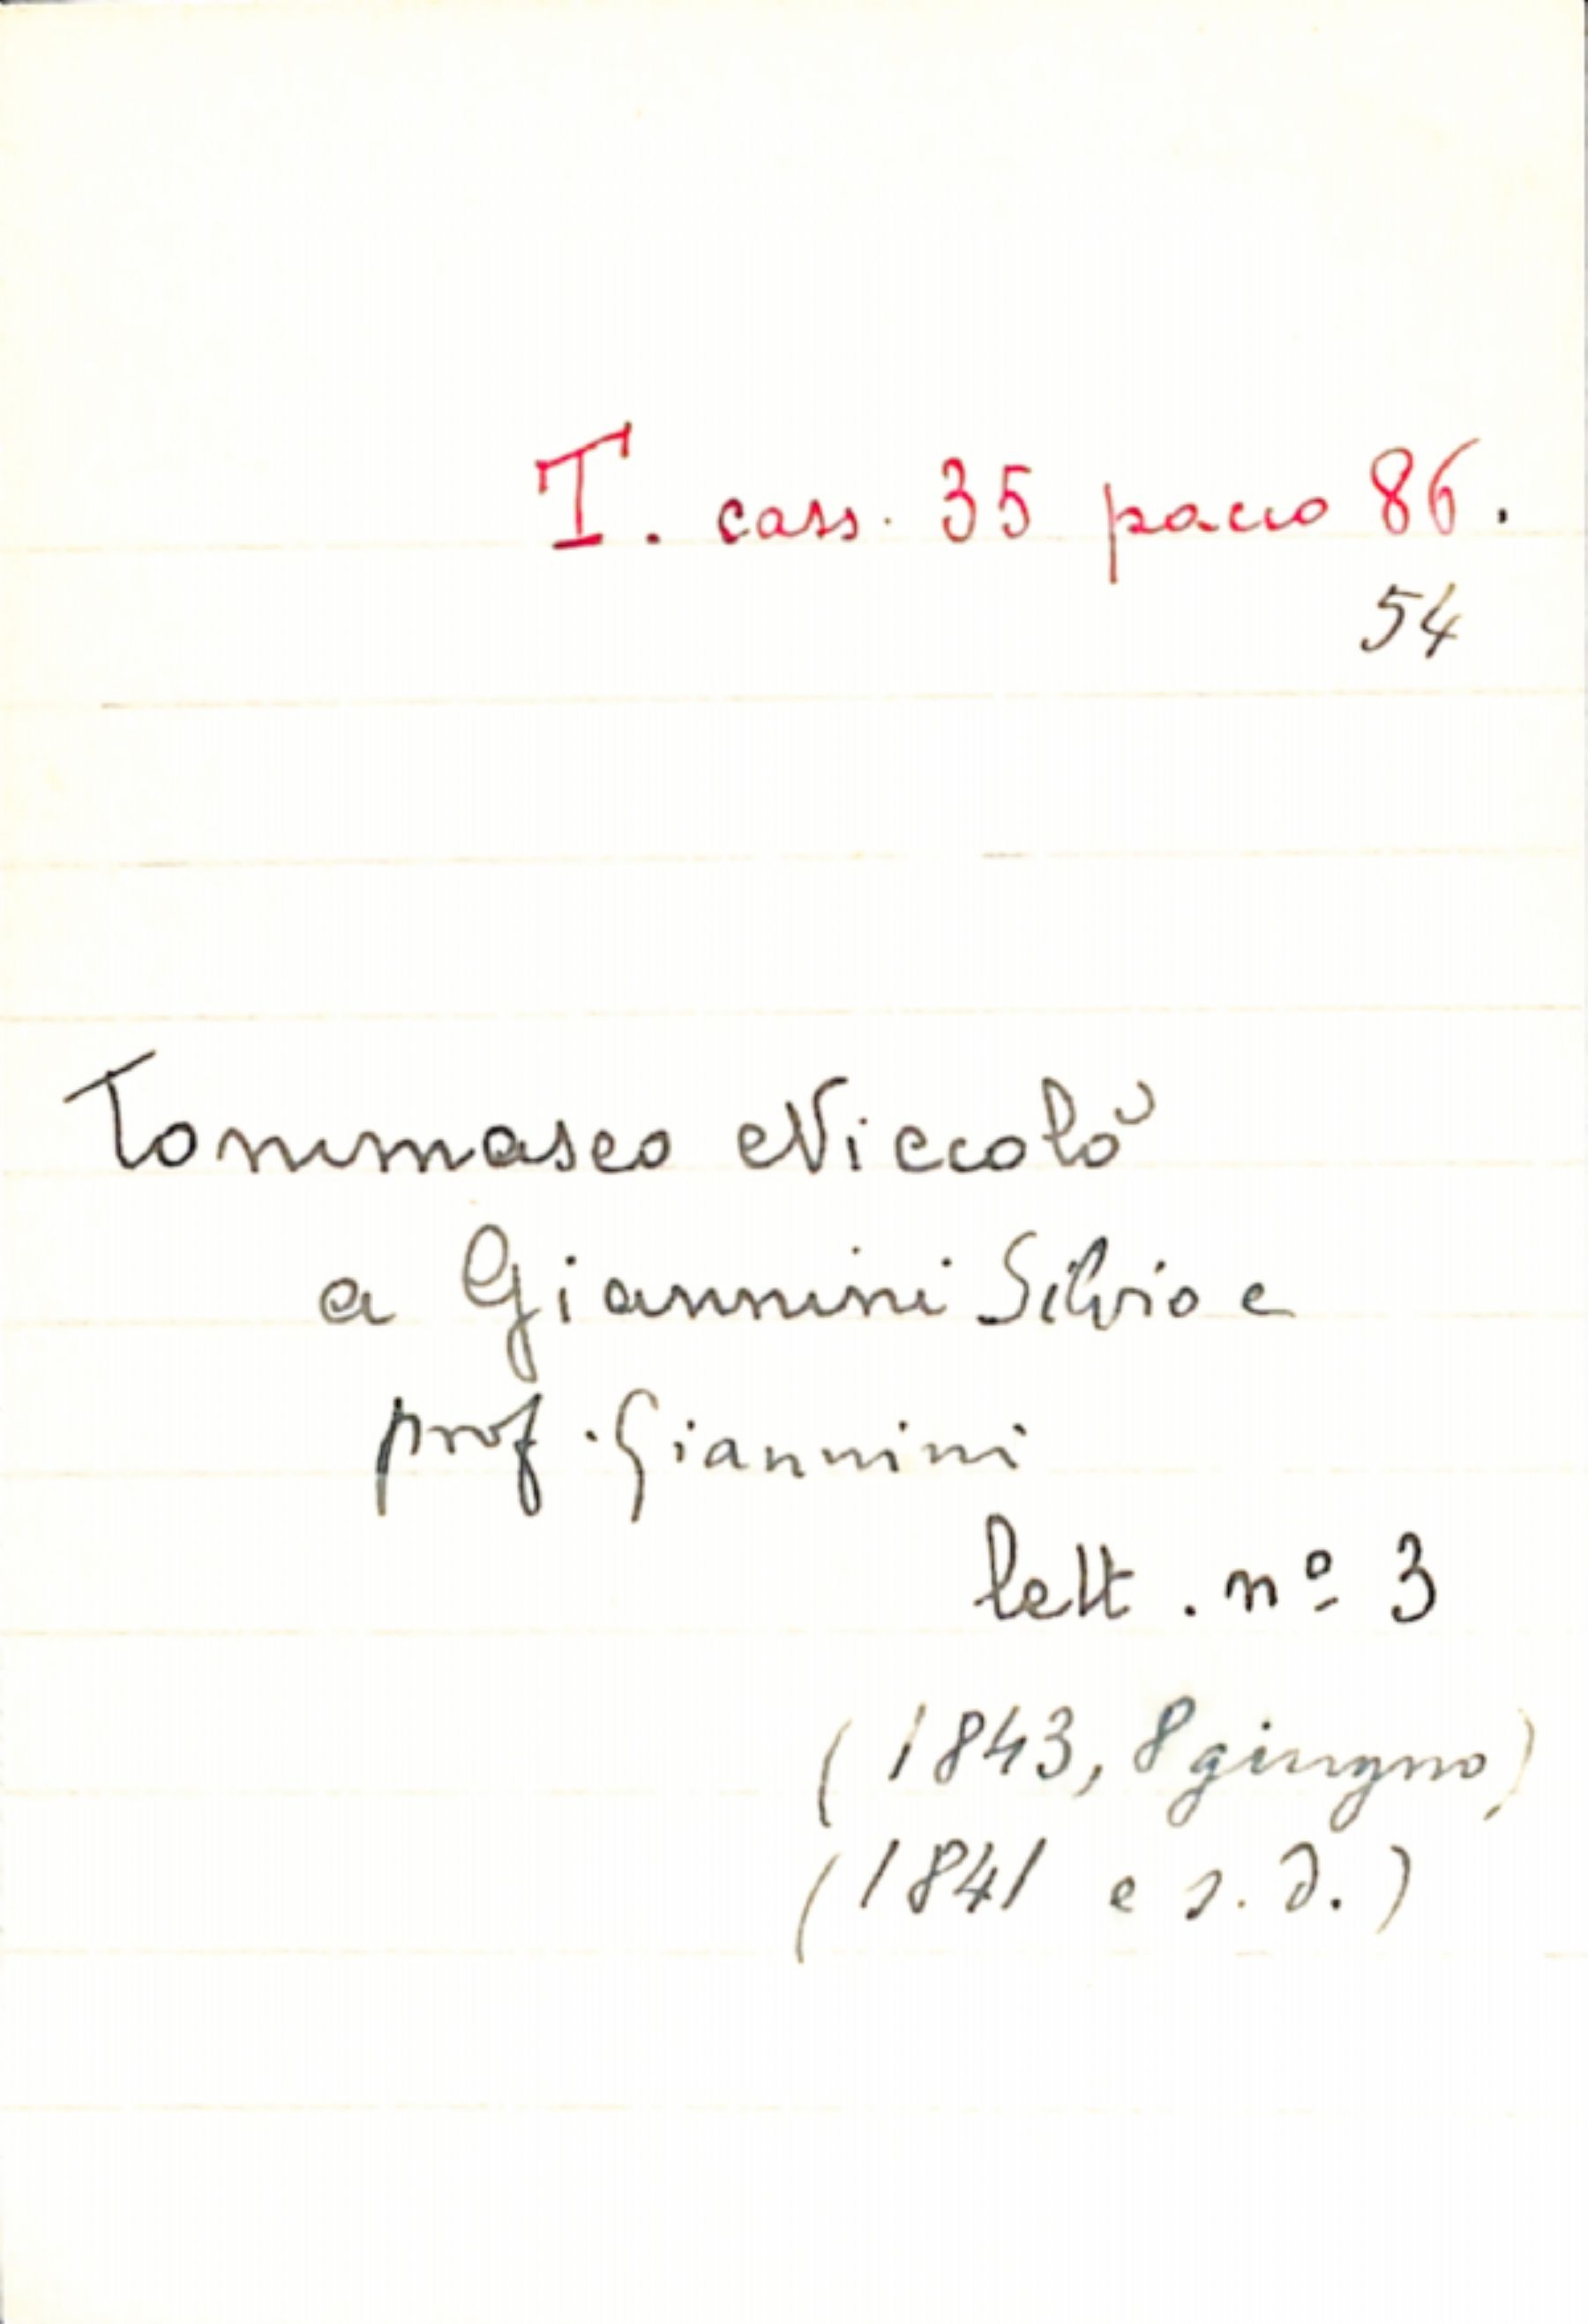 T. cass. 35 pacco 86.
54
Tommaseo Niccolò
a Giannini Silvio e
prof. Giannini
lett. nº 3
(1843, 8 giugno)
(1841 e s. d.)